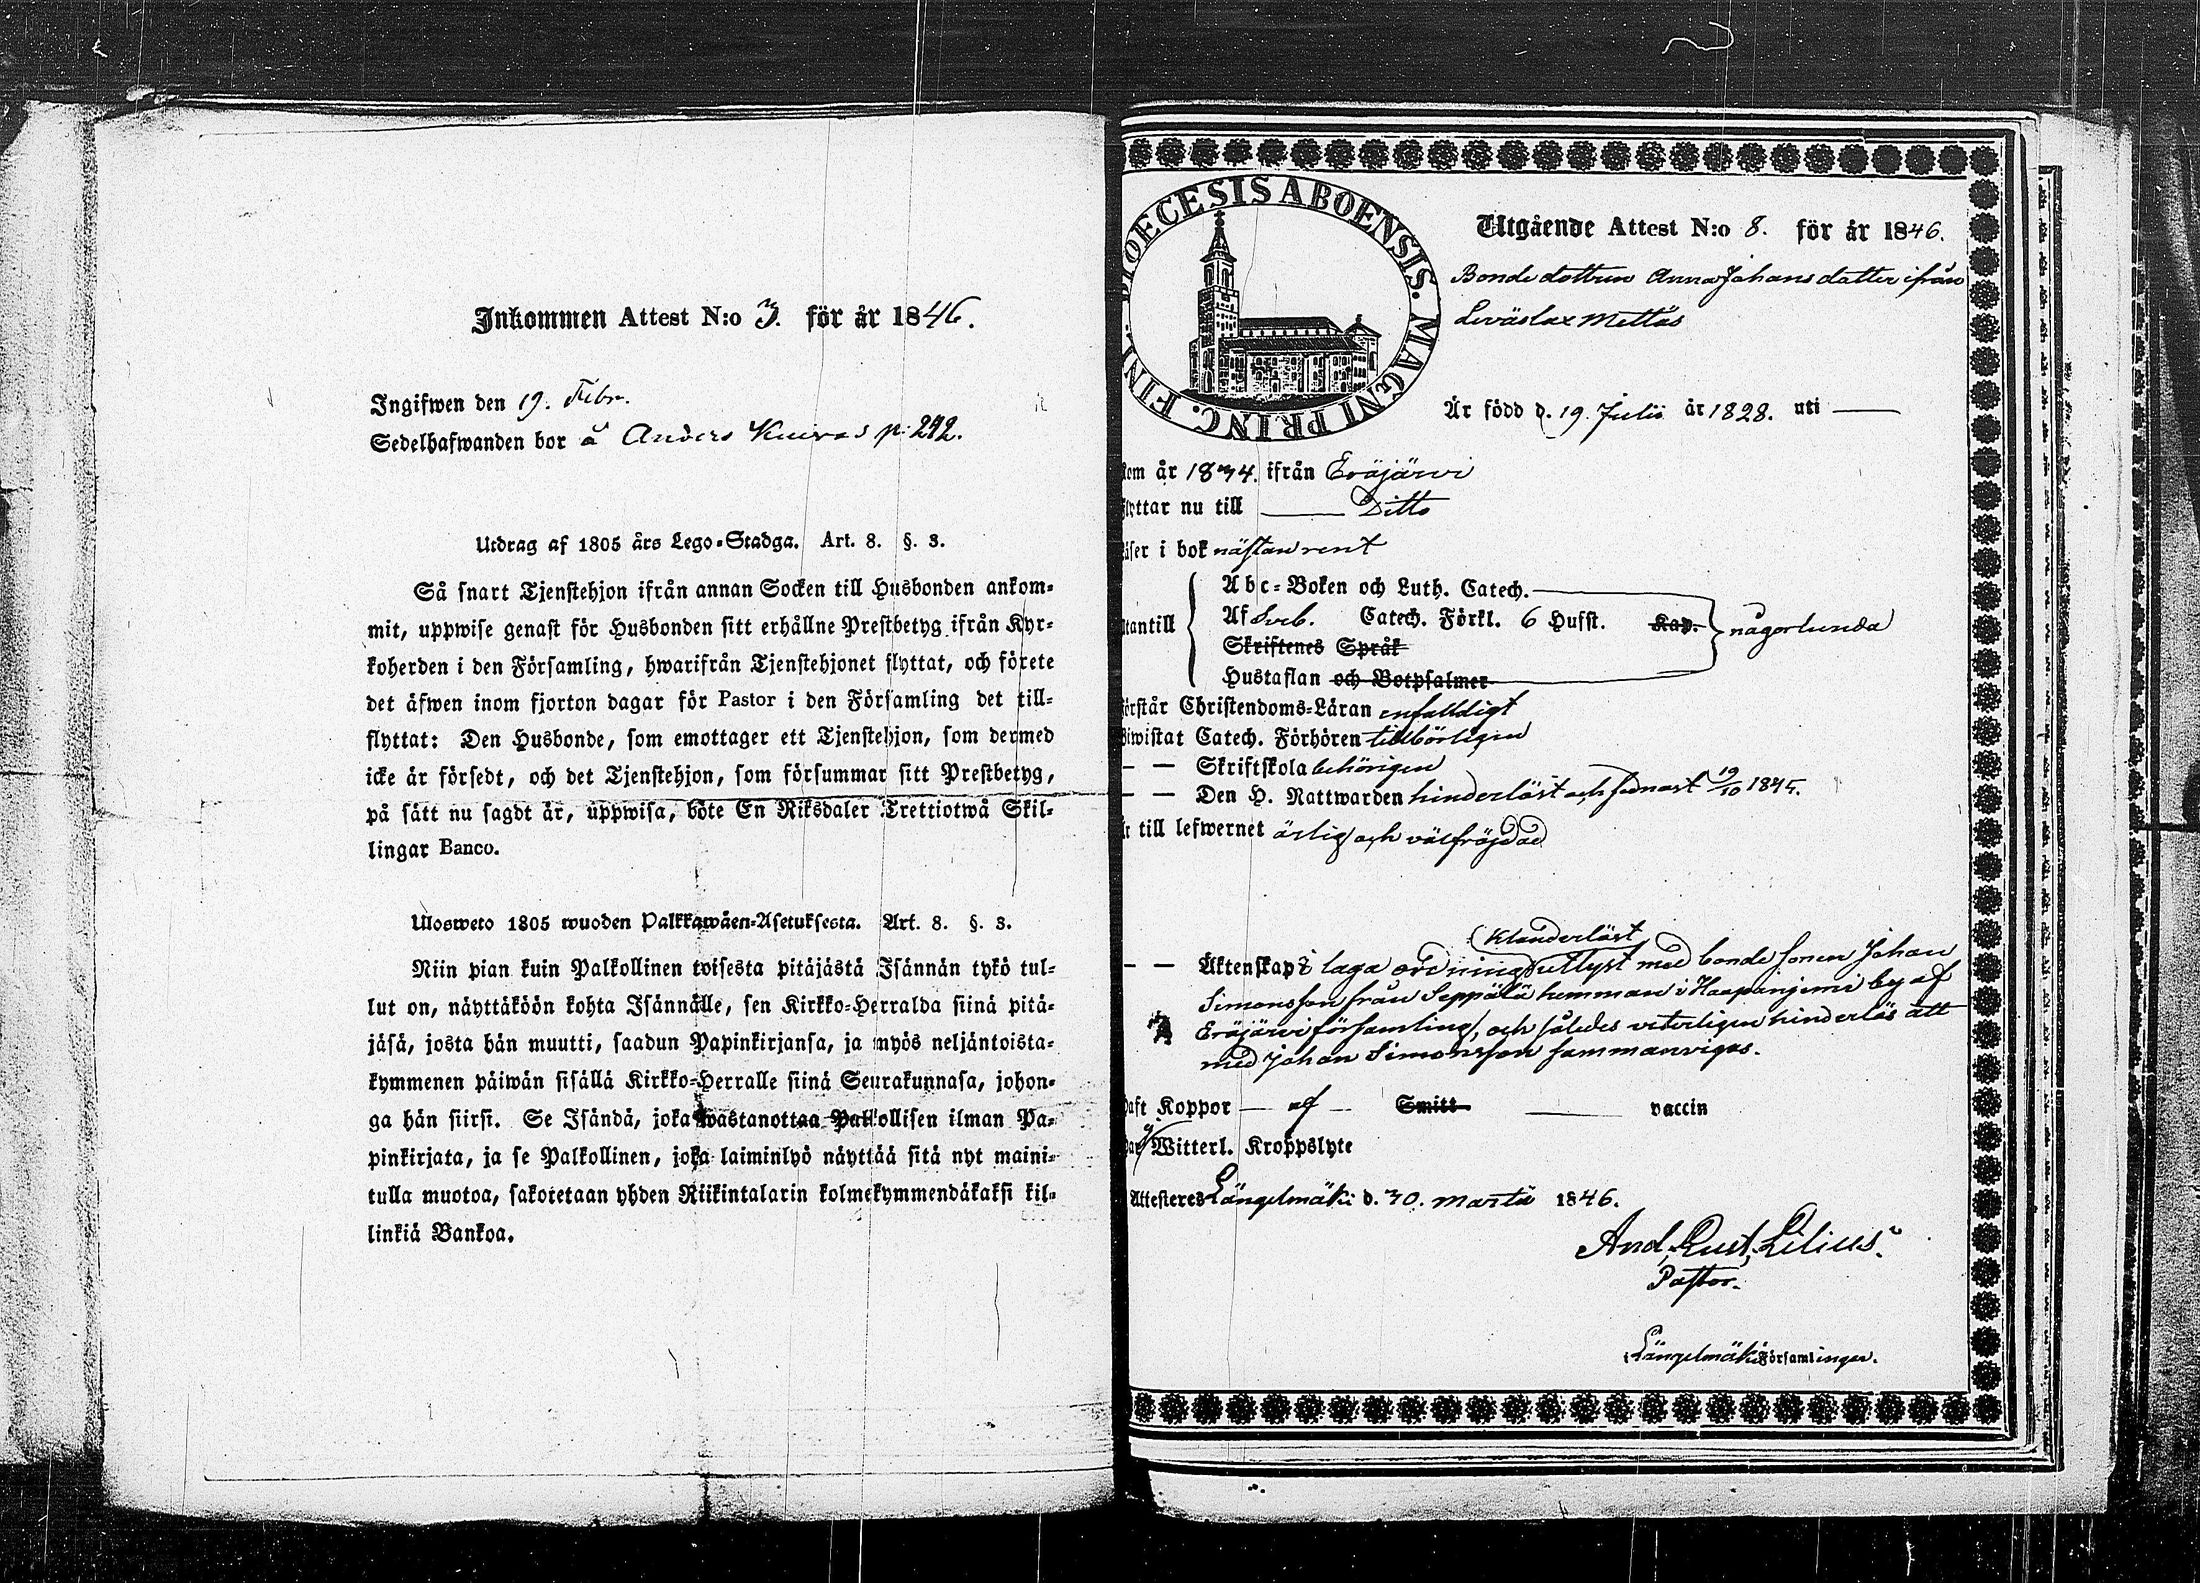 Inkommen Attest N:o 3. för år 1846.
Ingifwen den 19. Febr.
Sedelhafwanden bor å Anders Knivas p: 242.
Utdrag af 1805 års Lego-Stadga. Art. 8. §. 3.
Så snart Tjenstehjon ifrån annan Socken till Husbonden ankom-
mit, uppwise genast för Husbonden sitt erhållne Prestbetyg ifrån Kyr-
koherden i den Församling, hwarifrån Tjenstehjonet flyttat, och förete
det äfwen inom fjorton dagar för Pastor i den Församling det till-
flyttat: Den Husbonde, som emottager ett Tjenstehjon, som dermed
icke är försedt, och det Tjenstehjon, som försummar sitt Prestbetyg,
på sätt nu sagdt är, uppwisa, böte En Riksdaler Trettiotwå Skil-
lingar Banco.
Ulosweto 1805 wuoden Palkkawäen-Asetuksesta. Art. 8. §. 3.
Niin pian kuin Palkollinen toisesta pitäjästä Isännän tykö tul-
lut on, näyttäköön kohta Isännälle, sen Kirkko-Herralda siinä pitä-
jäsä, josta hän muutti, saadun Papinkirjansa, ja myös neljäntoista-
kymmenen päiwän sisällä Kirkko-Herralle siinä Seurakunnasa, johon-
ga hän siirsi. Se Isändä, joka wastanottaa Palkollisen ilman Pa-
pinkirjata, ja se Palkollinen, joka laiminlyö näyttää sitä nyt maini-
tulla muotoa, sakotetaan yhden Riikintalarin kolmekymmendäkaksi kil-
linkiä Bankoa.
DIOECESIS ABOENSIS. MAGNI PRINC. FINL.
Utgående Attest N:o 8. för år 1846.
Bonde dottren Anna Johansdatter ifrån
Leväslax Mettäs
Är född d. 19. Julii år 1828. uti
kom år 1834. ifrån Eräjärvi
flyttar nu till Ditto
läser i bok nästan rent
utantill
Abc-Boken och Luth. Catech.
Af Sveb. Catech. Förkl. 6 Hufst. Kap. någorlunda
Skriftenes Språk
Hustaflan och Botpsalmer
förstår Christendoms-Läran enfalldigt
Biwistat Catech. Förhören tillbörligen
— — Skriftskola behörigen
— — Den H. Nattwarden hinderlöst och sednast 19/10 1845.
är till lefwernet ärlig och välfräjdad
Klanderlöst
— — Äktenskap i laga ordning utlyst med bonde sonen Johan
Simonsson från Seppälä hemman i Haapaniemi by af
Eräjärvi församling, och således veterligen hinderlös att
med Johan Simonsson sammanvigas.
haft Koppor — af — Smitt vaccin
har ej Witterl. Kroppslyte
Attesteres Längelmäki d. 30. Martii 1846.
And. Gust. Lilius.
Pastor.
i Längelmäki Församlingen.